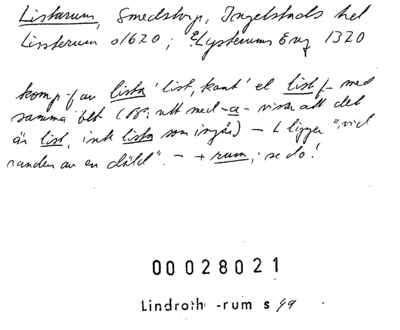 Listarum, Smedstorp, Ingelstads hd
Listerum o1620; Lysterums Eng 1320
komp. f av lista 'list, kant' el list f. med
samma bet (OBS: att med -a- visar att det
är list, inte lista som ingår) – L ligger "vid
randen av en däld". – + rum; se do!
00028021
Lindroth -rum s 49.